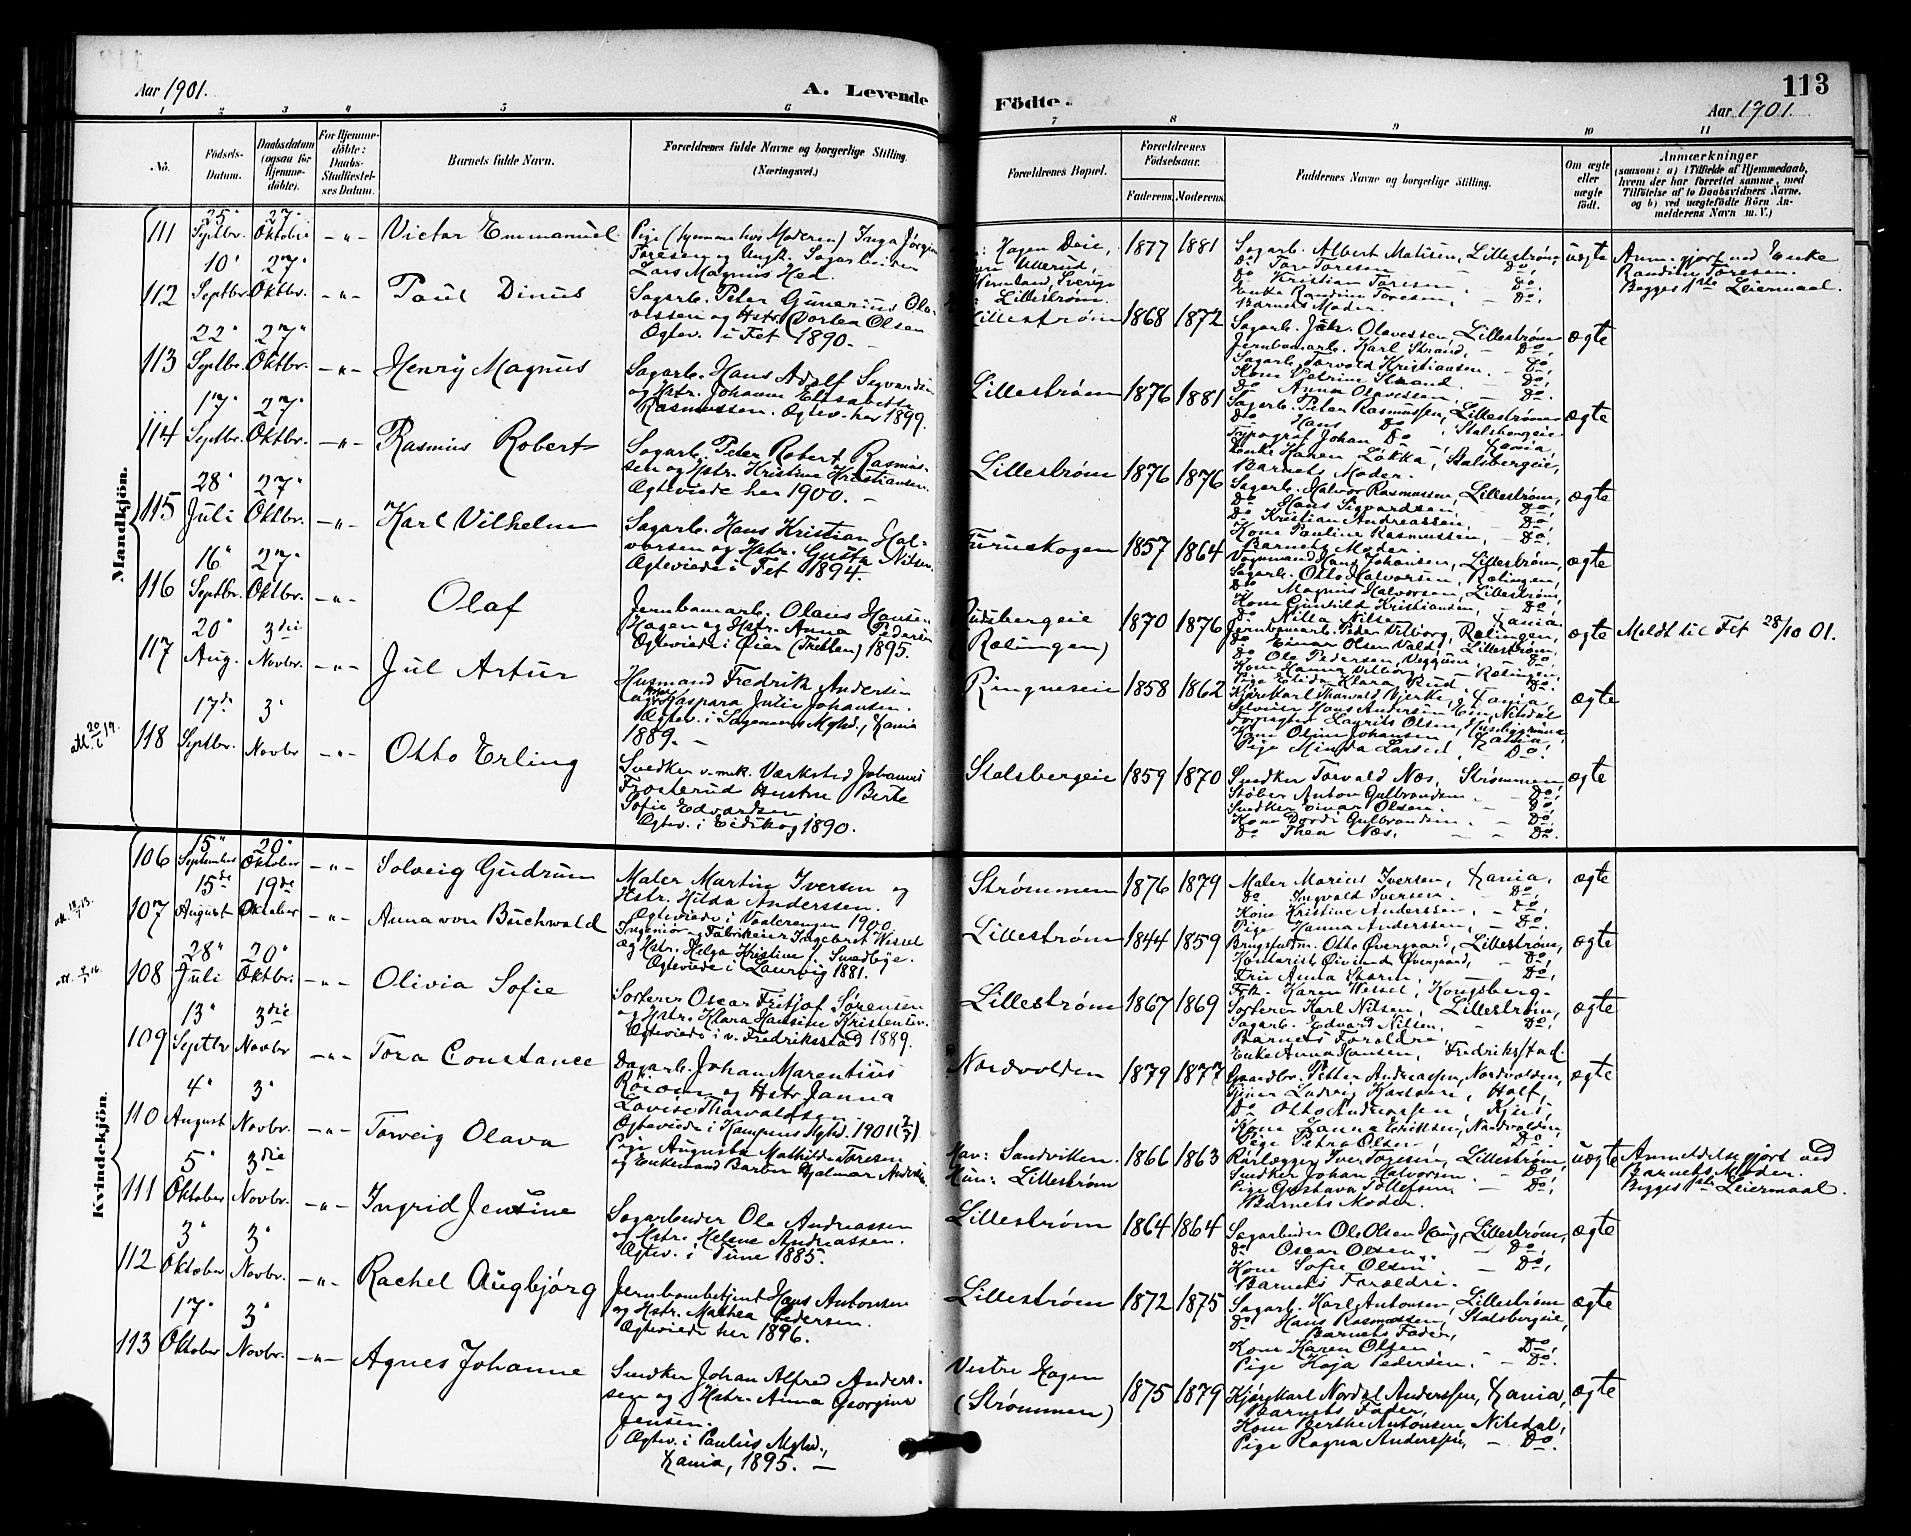 Aar 1901.
A. Levende
Födte.
113
Aar 1901.
1 2 3 4 5 6 7 8 9 10 11
No.
Födsels-Datum.
Daabsdatum (ogsaa for Hjemme-döbte).
For Hjemme-döbte: Daabs-Stadfæstel-ses Datum.
Barnets fulde Navn.
Forældrenes fulde Navne og borgerlige Stilling. (Næringsvei.)
Forældrenes Bopæl.
Forældrenes Födselsaar.
Faderens. Moderens.
Faddernes Navne og borgerlige Stilling.
Om ægte eller uægte født.
Anmærkninger
(saasom: a) i Tilfælde af Hjemmedaab,
hvem der har forrettet samme, med
Tilföielse af to Daabsvidners Navne,
og b) ved uægtefödte Börn An-
melderens Navn m. V.)
Mandkjön.
111 25" Septbr. 27" Oktober -"- Victor Emmanuel
Pige (hjemme hos Moderen) Inga Jørgine
Toresen og Ungk. Sagarbeider
Lars Magnus Hed.
Hagen Deie,
Ullerud,
Vermland, Sverge
Lillestrøm.
1877 1881
Sagarb. Albert Matisen, Lillestrøm,
Do Tor Toresen Do,
Do Kristian Toresen, Do,
Enke Randine Toresen, - Do,
Barnets Moder.
uægte
Anm. gjort ved Enke
Randine Toresen.
Begges 1ste Leiermaal.
112 10" Septbr. 27" Oktbr. -"- Paul Dinus
Sagarb. Peter Gunerius Ola-
vessen og Hstr. Dorthea Olsen
Ægtev. i Fet 1890. -
Lillestrøm 1868 1872
Sagarb. Johs. Olavessen, Lillestrøm
Jernbanearb. Karl Strand, - Do,
Sagarb. Torvald Kristiansen. - Do,
Kone Petrine Strand. - Do,
Do Anna Olavessen, - Do.
ægte
113 22" Septbr. 27" Oktbr. -"- Henry Magnus
Sagarb. Hans Adolf Sigvardsen
og Hstr. Johanne Elisabeth
Rasmussen. Ægtev. her 1899.
Lillestrøm 1876 1881
Sagarb. Peter Rasmussen, Lillestrøm
Do Hans Do, Stalsbergeie
Typograf Johan Do, Xania,
Enke Karen Løkka, Stalsbergeie,
Barnets Moder.
ægte
114 17" Septbr. 27" Oktbr. -"- Rasmus Robert
Sagarb. Peter Robert Rasmus-
sen og Hstr. Kristine Kristiansen.
Ægteviede her 1900. -
Lillestrøm 1876 1876
Sagarb. Halvor Rasmussen, Lillestrøm,
Do Hans Sigvardsen, Do,
Do Kristian Andreassen, - Do,
Kone Pauline Rasmussen, - Do,
Barnets Moder.
ægte
115 28" Juli 27" Oktbr. -"- Karl Vilhelm
Sagarb. Hans Kristian Hal-
vorsen og Hstr. Gusta Nilsen.
Ægteviede i Fet 1894.
Furuskogen 1857 1864
Vognmand Hans Johansen, Lillestrøm,
Sagarb. Otto Halvorsen, Rælingen,
Do Magnus Halvorsen, Lillestrøm,
Kone Gunhild Kristiansen, - Do,
Do Nilla Nilsen, Xania.
ægte
116 16" Septbr. 27" Oktbr. -"- Olaf
Jernbanearb. Olaus Hansen
Hagen og Hstr. Anna Pedersen
Ægteviede i Øier (Tretten) 1895.
(Rælingen) 1870 1876
Jernbanearb. Peder Vilborg, Rælingen,
Do Einar Olsen Vald, Lillestrøm,
Do Ole Pedersen, Do.
Kone Hanna Vilborg - Rælingen,
Pige Elida Klara Rud - Do.
ægte Meldt til Fet 28/10 01.
117 20" Aug. 3die Novbr. -"- Jul Artur
Husmand Fredrik Andersen
og Hstr. Kaspara Julie Johansen.
Ægtev. i Sagenes Mghd., Xania
1889. -
Ringneseie 1858 1862
Kjørekarl Thorvald Gjerke, Xania,
Hans Andersen Nittedal
Forpagter Laurits Olsen,
Kone Oline Johansen, Xania,
Pige Minda Larsen, Do.
ægte
att. 20/6 17.
118 17de Septbr. 3" Novbr -"- Otto Erling
Snedker v. mek. Værksted Johannes
Frosterud Hustru Berte
Sofie Edvardsen
Ægtev. i Eidskog 1890.
Stalsbergeie 1859 1870
Snedker Torvald Næs, Strømmen,
Støber Anton Gulbrandsen. - Do,
Snedker Einar Olsen. - Do,
Kone Dordi Gulbrandsen. - Do,
Do Thea Næs, - Do.
ægte
Kvindekjön.
106 15" September 20" Oktober -"- Solveig Gudrun
Maler Martin Iversen og
Hstr. Hilda Anderssen.
Ægteviede i Vaalerengen 1900.
Strømmen 1876 1879
Maler Marius Iversen, Xania,
Do Ingvald Iversen. - Do,
Kone Kristine Anderssen, - Do,
Pige Hanna Anderssen, - Do.
ægte
107 15de August 19de Oktober -"- Anna von Buchwald
Ingeniør og Fabrikeier Ingebret Wessel
og Hstr. Helga Kristine f. Svendbye.
Ægteviede i Laurvig 1881.
Lillestrøm 1844 1859
Brugsfuldm. Otto Øvergaard, Lillestrøm,
Kontorist Øivind Øvergaard, - Do,
Fru Anna Storm - Do,
Frk. Karen Wessel, Kongsberg.
ægte
108 28" Juli 20" Oktbr. -"- Olivia Sofie
Sorterer Oscar Fritjof Sørensen
og Hstr. Klara Hansine Kristensen.
Ægteviede i v. Fredriksstad 1889.
Lillestrøm 1867 1869
Sorterer Karl Nilsen, Lillestrøm,
Sagarb. Edvard Nilsen, - Do,
Barnets Forældre,
Enke Anna Hansen, Fredriksstad.
ægte
109 13" Septbr 3die Novbr -"- Tora Constance
Dagarb. Johan Marentius
og Hstr Janna
Lovise Thorvaldsen.
Ægteviede i Kampens Mghd. 1901
Nordvolden 1879 1877
Gaardbr. Petter Andreassen, Nordvolden,
Ludvig Karlsen, Holt,
Do Otto Andreassen,
Kone Hanna Eriksen, Nordvolden,
Pige Petra Olsen, Do.
ægte
110 4" August 3" Novbr. -"- Torveig Olava
Pige Augusta Mathilde Toresen
og Enkemand Barber Hjalmar Andersen
Hav: Sandviken.
Hun: Lillestrøm
1866 1863
Rørlægger Iver Toresen, Lillestrøm,
Snedker Johan Halvorsen. - Do,
Pige Gustava Tollefsen. - Do,
Barnets Moder.
uægte
Anmeldelse gjort ved
Barnets Moder.
Begges 1ste Leiermaal.
111 5" Oktober 3die Novbr. -"- Ingrid Jensine
Sagarbeider Ole Andreassen
og Hstr. Helene Andreassen.
Ægtev. i Tune 1885.
Lillestrøm 1864 1864
Sagarbeider Ole Olsen Haug, Lillestrøm,
Do Oscar Olsen, - Do,
Kone Sofie Olsen - Do,
Barnets Forældre.
ægte
112 3" Oktober 3" Novbr. -"- Rachel Augbjørg
Jernbanebetjent Hans Antonsen
og Hstr. Mathea Pedersen.
Ægteviede her 1896.
Lillestrøm 1872 1875
Sagarb. Karl Antonsen, Lillestrøm
Do Hans Rasmussen, Stalsbergeie,
Barnets Fader,
Kone Karen Olsen - Do,
Pige Kaja Pedersen. - Do.
ægte
113 17" Oktober 3" Novbr. -"- Agnes Johanne
Snedker Johan Alfred Anders-
sen og Hstr. Anna Georgine
Jensen.
Ægtev. i Paulus Mghd.,
Xania, 1895. -
Vestre Hagen
(Strømmen)
1875 1879
Kjørekarl Nordal Anderssen, Xania,
Barnets Fader,
Kone Berthe Antonsen, Nitedal,
Pige Ragna Anderssen, - Do.
ægte